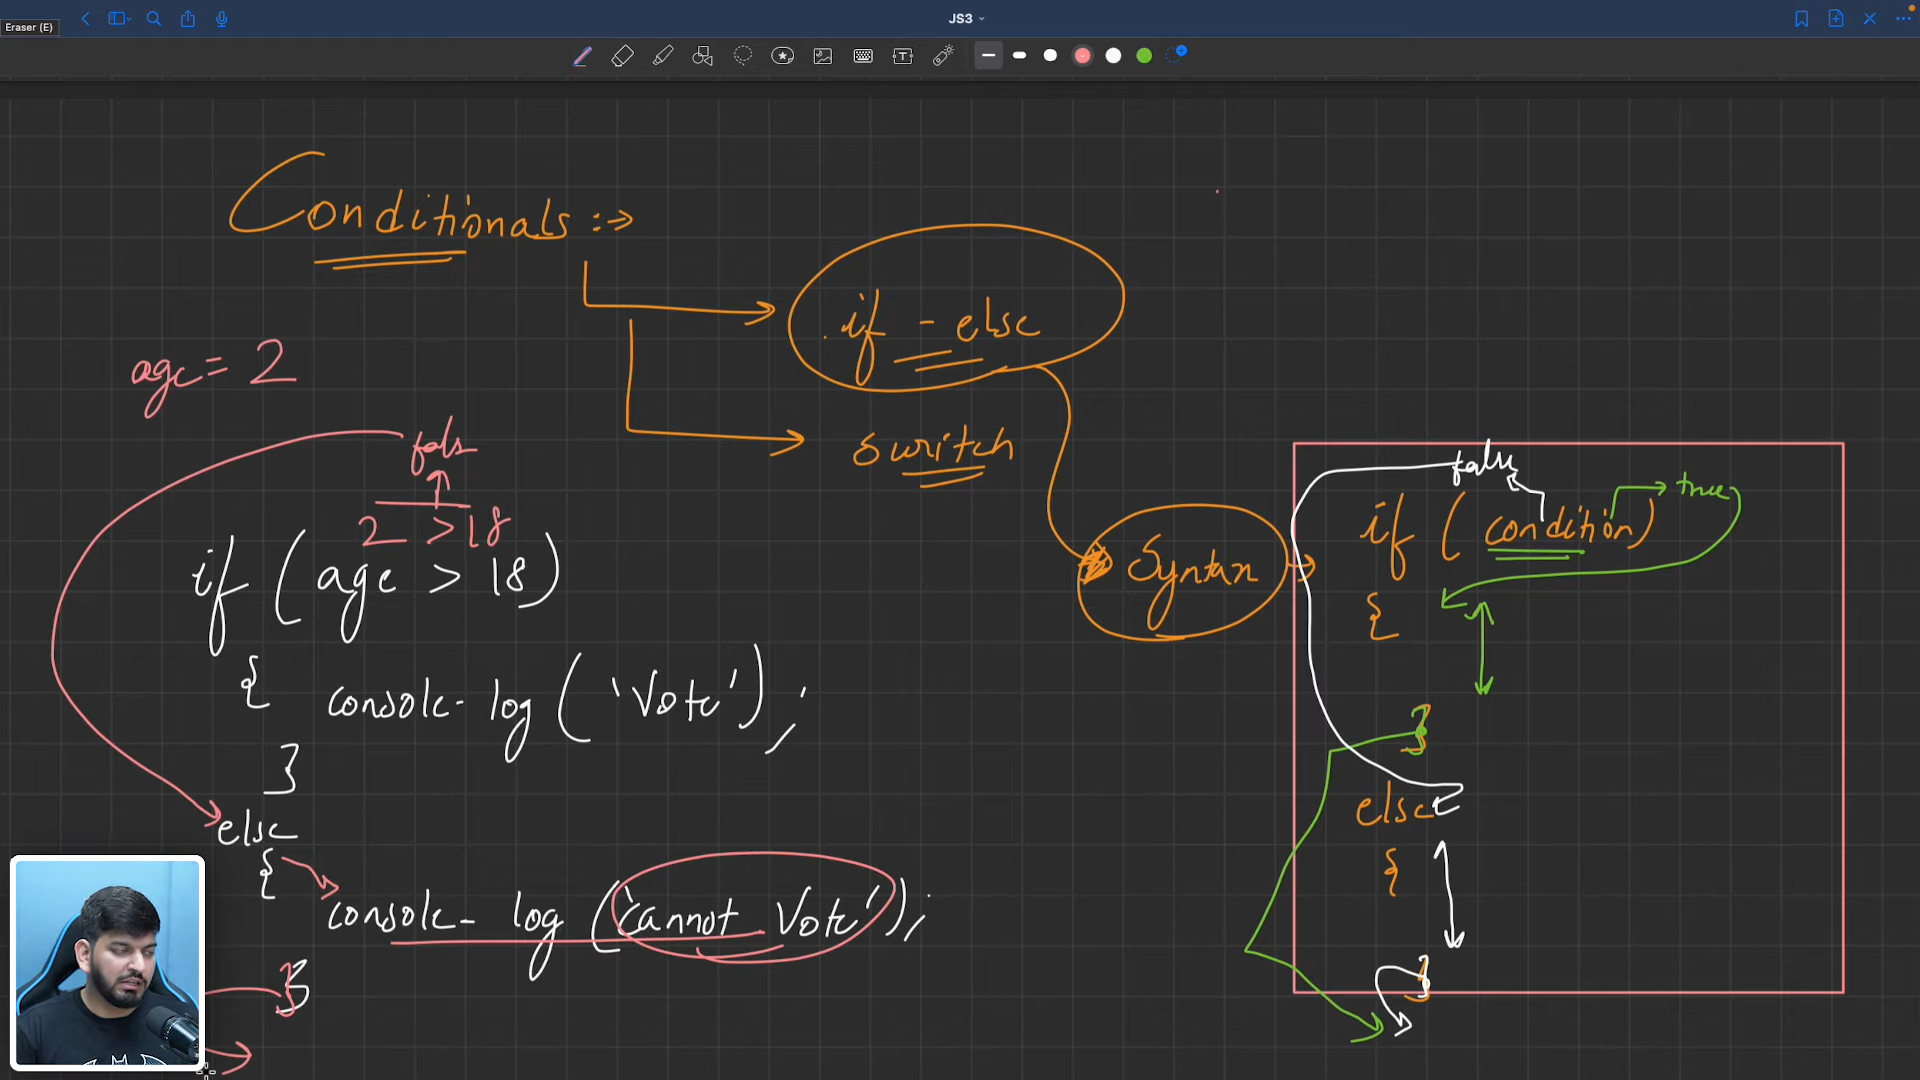 JS3
Eraser (E)
Conditionals :→
if - else
switch
age = 2
fals
2 > 18
if ( age > 18 )
{ console.log ( 'Vote' ) ;
}
else
{
console.log ( 'cannot Vote' ) ;
}
Syntax
false
if ( condition )
true
{
}
else
{
}